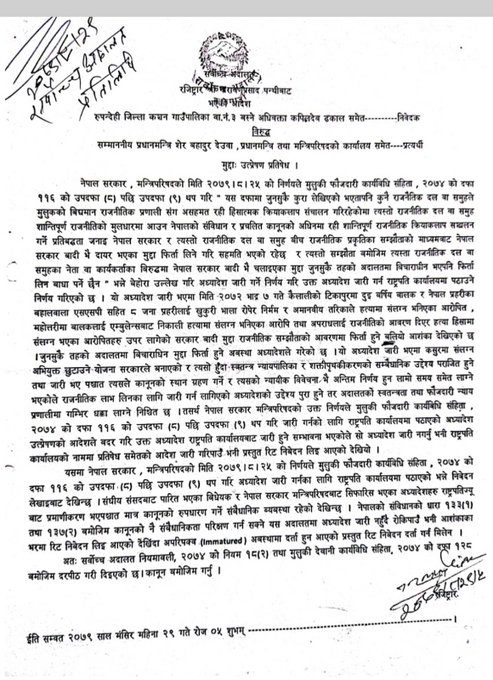 सर्वोच्च अदालत
रजिष्ट्रार श्री नारायणप्रसाद पन्थीबाट
भएको आदेश
रुपन्देही जिल्ला कंचन गाउँपालिका वा.नं.३ बस्ने अधिवक्ता कपिलदेव ढकाल समेत------------निवेदक
विरुद्ध
सम्माननीय प्रधानमन्त्रि शेर बहादुर देउवा , प्रधानमन्त्रि तथा मन्त्रिपरिषदको कार्यालय समेत----प्रत्यर्थी
मुद्दाः उत्प्रेषण प्रतिषेध ।
नेपाल सरकार , मन्त्रिपरिषदको मिति २०७९।८।२५ को निर्णयले मुलुकी फौजदारी कार्यविधि संहिता , २०७४ को दफा
११६ को उपदफा (८) पछि उपदफा (९) थप गरि " यस दफामा जुनसुकै कुरा लेखिएको भएतापनि कुनै राजनैतिक दल वा समुहले
मुलुकको बिधमान राजनितिक प्रणाली संग असहमत रही हिंसात्मक क्रियाकलाप संचालन गरिरहेकोमा त्यस्तो राजनितिक दल वा समुह
शान्तिपूर्ण राजनितिको मुलधारमा आउन नेपालको संविधान र प्रचलित कानूनको अधिनमा रही शान्तिपूर्ण राजनितिक क्रियाकलाप सञ्चालन
गर्ने प्रतिबद्धता जनाइ नेपाल सरकार र त्यस्तो राजनितिक दल वा समुह बीच राजनितिक प्रकृतिका सम्झौताको माध्यमबाट नेपाल
सरकार बादी भै दायर भएका मुद्दा फिर्ता लिने गरि सहमति भएको रहेछ र त्यस्तो सम्झौता बमोजिम त्यस्ता राजनितिक दल वा
समुहका नेता वा कार्यकर्ताका बिरुद्धमा नेपाल सरकार बादी भै चलाइएका मुद्दा जुनसुकै तहको अदालतमा बिचाराधीन भएपनि फिर्ता
लिन बाधा पर्ने छैन " भन्ने बेहोरा उल्लेख गरि अध्यादेश जारी गर्ने गरि उक्त अध्यादेश जारी गर्न राष्ट्रपति कार्यालयमा पठाउने
निर्णय गरिएको छ । यो अध्यादेश जारी भएमा मिति २०७२ भाद्र ७ गते कैलालीको टिकापुरमा दुइ बर्षिय बालक र नेपाल प्रहरीका
बहालवाला एसएसपी सहित ८ जना प्रहरीलाई खुकुरी भाला रोपेर निर्मम र अमानवीय तरिकाले हत्यामा संलग्न भनिएका आरोपित ,
महोत्तरीमा बालकलाई एम्बुलेन्सबाट निकाली हत्यामा संलग्न भनिएका आरोपि तथा अपराधलाई राजनीतिको आवरण दिएर हत्या हिंसामा
संलग्न भएका आरोपितहरु उपर लागेको सरकार बादी मुद्दा राजनितिक सम्झौताको आवरणमा फिर्ता हुने बलियो आशंका देखिएको छ
। जुनसुकै तहको अदालतमा बिचाराधिन मुद्दा फिर्ता हुने अवस्था अध्यादेशले गरेको छ । यो अध्यादेश जारी भएमा कसुरमा संलग्न
अभियुक्त छुटाउने योजना सरकारले बनाएको र त्यसो हुँदा स्वतन्त्र न्यायपालिका र शक्तीपृथकीकरणको सम्बैधानिक उद्देश्य पराजित हुने
तथा जारी भए पश्चात त्यसले कानूनको स्थान ग्रहण गर्ने र त्यसको न्यायिक विवेचना भै अन्तिम निर्णय हुन लामो समय समेत लाग्ने
भएकोले राजनितिक लाभ लिनका लागि जारी गर्न लागिएको अध्यादेशको उद्देश्य पुरा हुने तर अदालतको स्वतन्त्रता तथा फौजदारी न्याय
प्रणालीमा गम्भिर धक्का लाग्ने निश्चित छ । तसर्थ नेपाल सरकार मन्त्रिपरिषदको उक्त निर्णयले मुलुकी फौजदारी कार्यविधि संहिता ,
२०७४ को दफा ११६ को उपदफा (८) पछि उपदफा (९) थप गरि जारी गर्नको लागि राष्ट्रपति कार्यालयमा पठाएको अध्यादेश
उत्प्रेषणको आदेशले बदर गरि उक्त अध्यादेश राष्ट्रपति कार्यालयबाट जारी हुने सम्भावना भएकोले सो अध्यादेश जारी नगर्नु भनी राष्ट्रपति
कार्यालयको नाममा प्रतिषेध समेतको आदेश जारी गरिपाउँ भनी प्रस्तुत रिट निवेदन लिइ आएको देखियो ।
यसमा नेपाल सरकार , मन्त्रिपरिषदको मिति २०७९।८।२५ को निर्णयले मुलुकी फौजदारी कार्यविधि संहिता , २०७४ को
दफा ११६ को उपदफा (८) पछि उपदफा (९) थप गरि अध्यादेश जारी गर्नका लागि राष्ट्रपति कार्यालयमा पठाएको भन्ने निवेदन
लेखाइबाट देखिन्छ । संघीय संसदबाट पारित भएका बिधेयक र नेपाल सरकार मन्त्रिपरिषदबाट सिफारिस भएका अध्यादेशहरु राष्ट्रपतिज्यू
बाट प्रमाणीकरण भएपश्चात मात्र कानूनको रुपधारण गर्ने संबैधानिक व्यवस्था रहेको देखिन्छ । नेपालको संविधानको धारा १३३(१)
तथा १३७(२) बमोजिम कानूनको नै संबैधानिकता परिक्षण गर्न सक्ने यस अदालतमा अध्यादेश जारी नहुँदै रोकिपाउँ भनी आशंकाका
भरमा रिट निवेदन लिइ आएको देखिंदा अपरिपक्व (Immatured) अवस्थामा दर्ता हुन आएको प्रस्तुत रिट निवेदन दर्ता गर्न मिलेन ।
अतः सर्वोच्च अदालत नियमावली, २०७४ को नियम १८(२) तथा मुलुकी देवानी कार्यविधि संहिता, २०७४ को दफा १२८
बमोजिम दरपीठ गरी दिइएको छ । कानून बमोजिम गर्नु ।
रजिष्ट्रार
ईति सम्वत २०७९ साल मंसिर महिना २९ गते रोज ०५ शुभम् ----------------------------------।